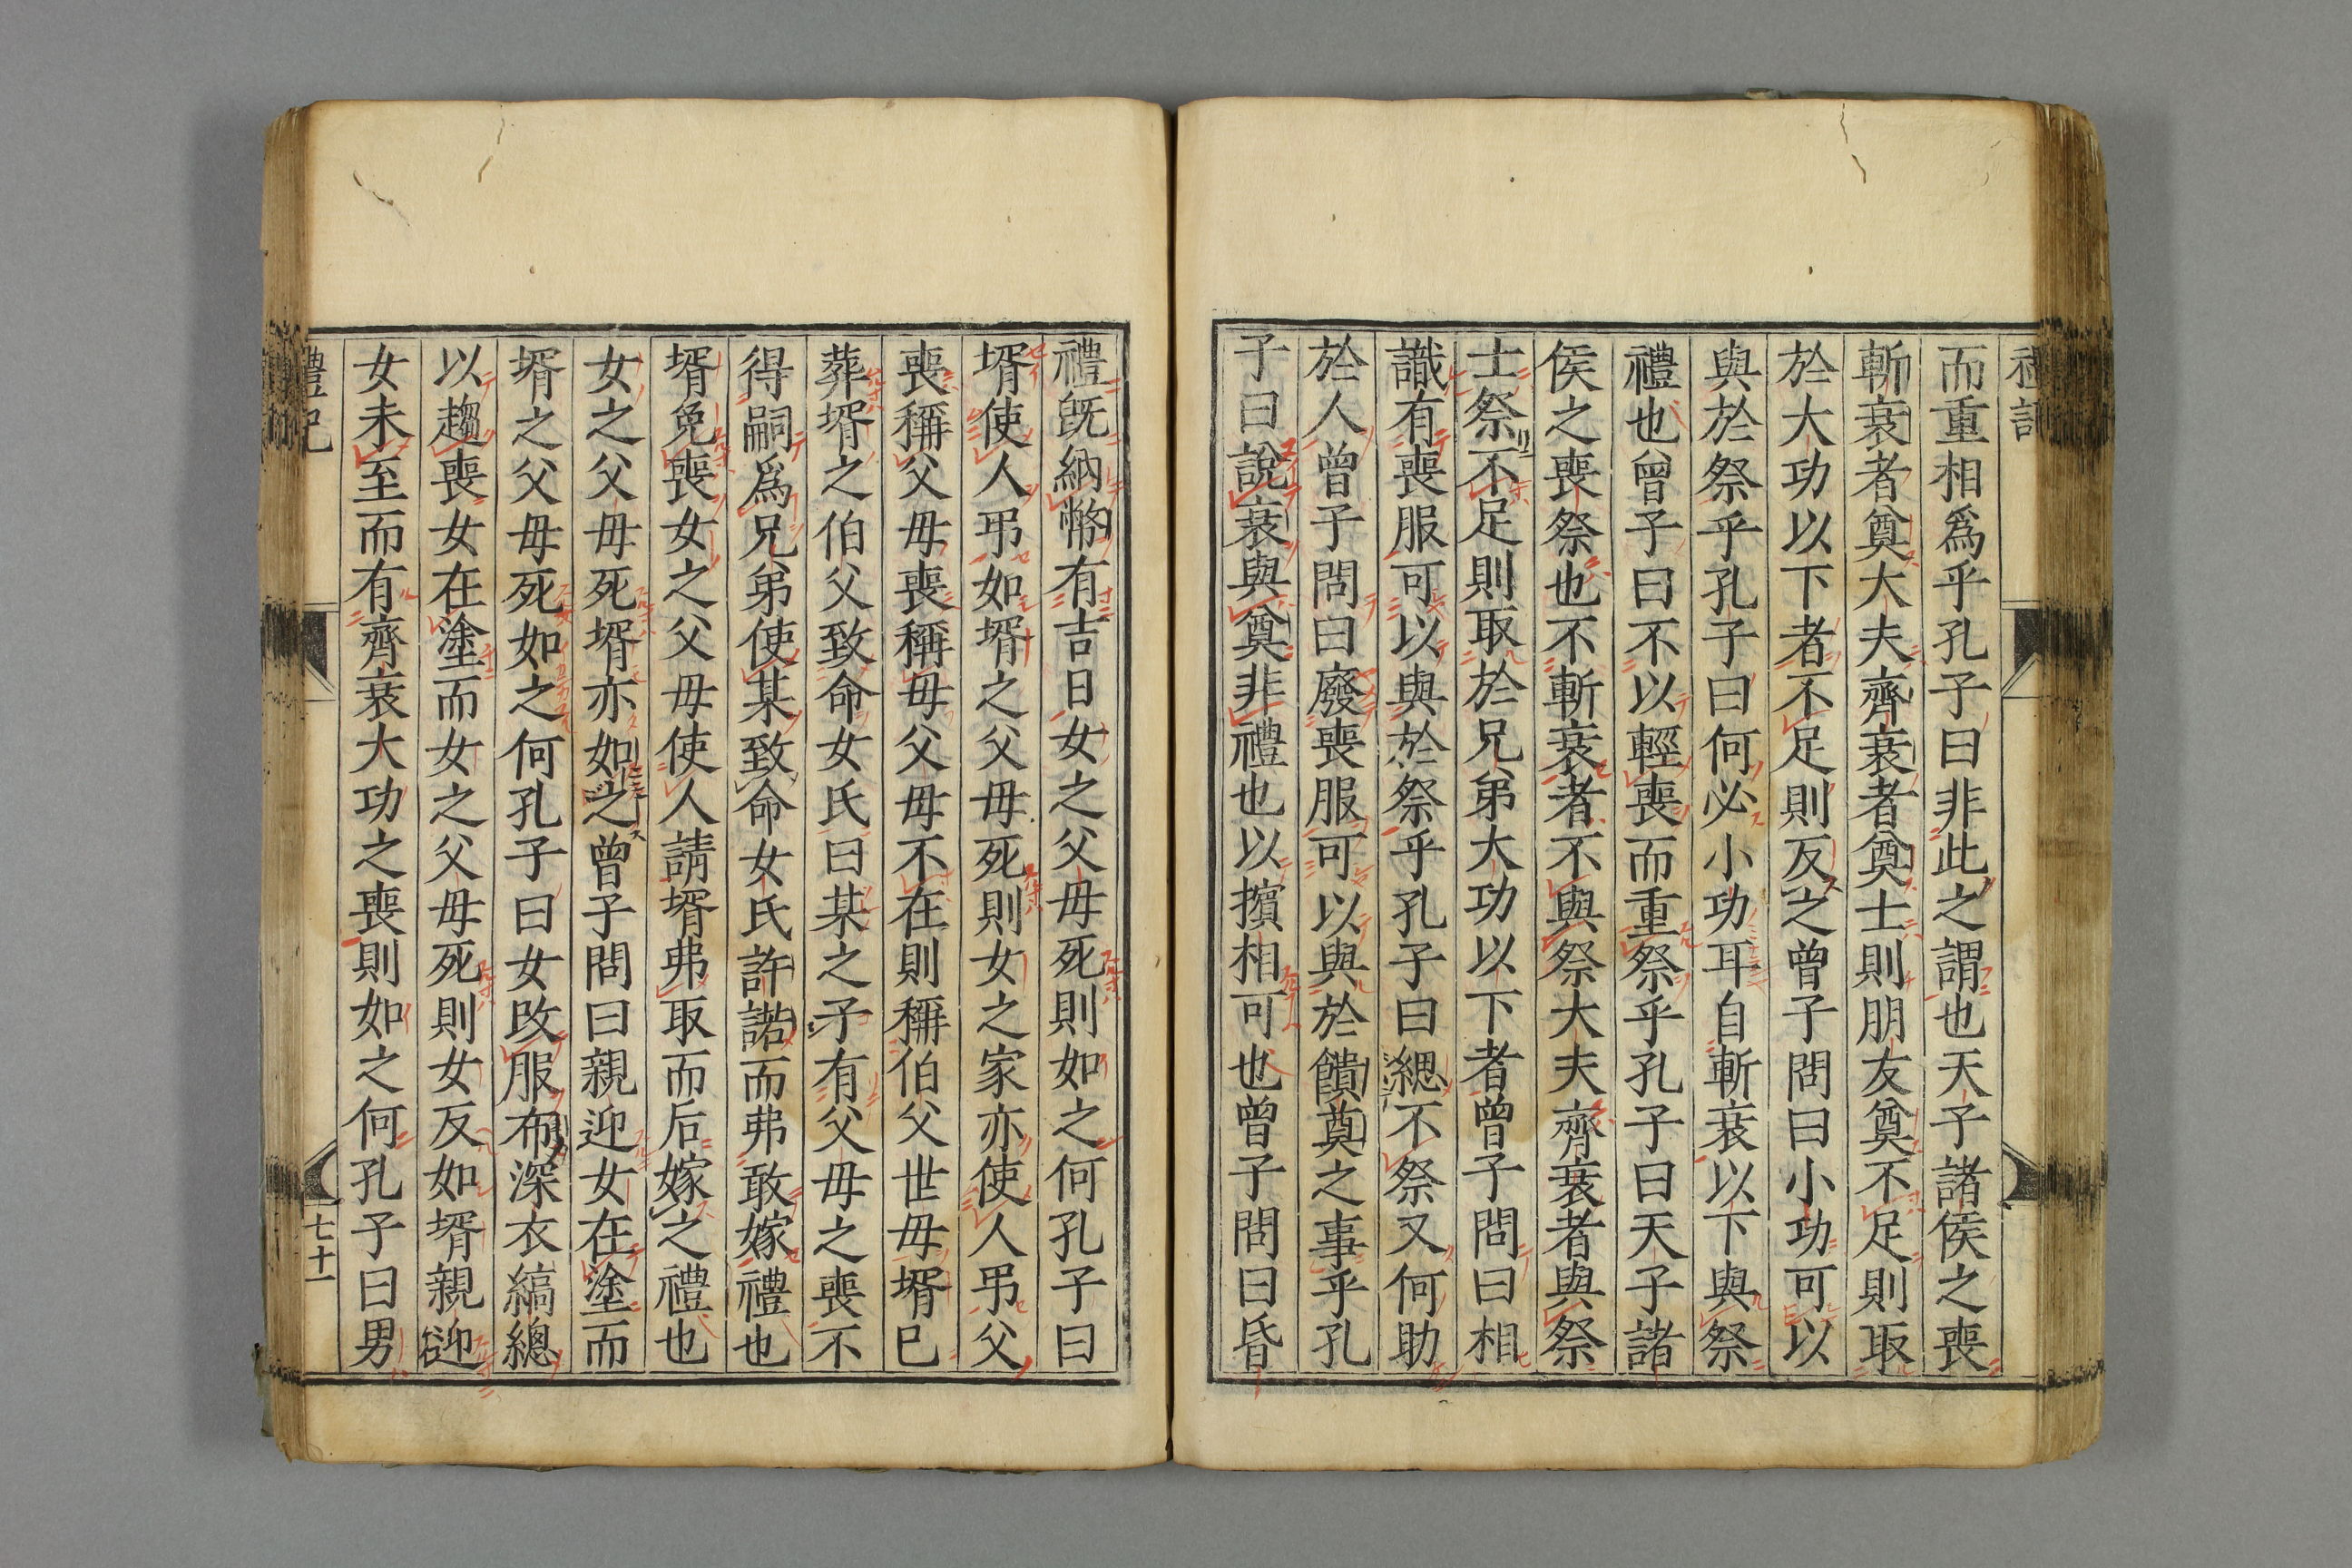 而重相爲乎孔子曰非此之謂也天子諸侯之喪
斬衰者奠大夫齊衰者奠士則朋友奠不足則取
於大功以下者不足則反之曾子問曰小功可以
與於祭乎孔子曰何必小功耳自斬衰以下與祭
禮也曾子曰不以輕喪而重祭乎孔子曰天子諸
侯之喪祭也不斬衰者不與祭大夫齊衰者與祭
士祭不足則取於兄弟大功以下者曾子問曰相
識有喪服可以與於祭乎孔子曰緦不祭又何助
於人曾子問曰廢喪服可以與於饋奠之事乎孔
子曰說衰與奠非禮也以擯相可也曾子問曰昏
禮旣納幣有吉日女之父母死則如之何孔子曰
壻使人弔如壻之父母死則女之家亦使人弔父
喪稱父母喪稱母父母不在則稱伯父世母壻已
葬壻之伯父致命女氏曰某之子有父母之喪不
得嗣爲兄弟使某致命女氏許諾而弗敢嫁禮也
壻免喪女之父母使人請壻弗取而后嫁之禮也
女之父母死壻亦如之曾子問曰親迎女在塗而
壻之父母死如之何孔子曰女改服布深衣縞總
以趨喪女在塗而女之父母死則女反如壻親迎
女未至而有齊衰大功之喪則如之何孔子曰男
禮記
七十一